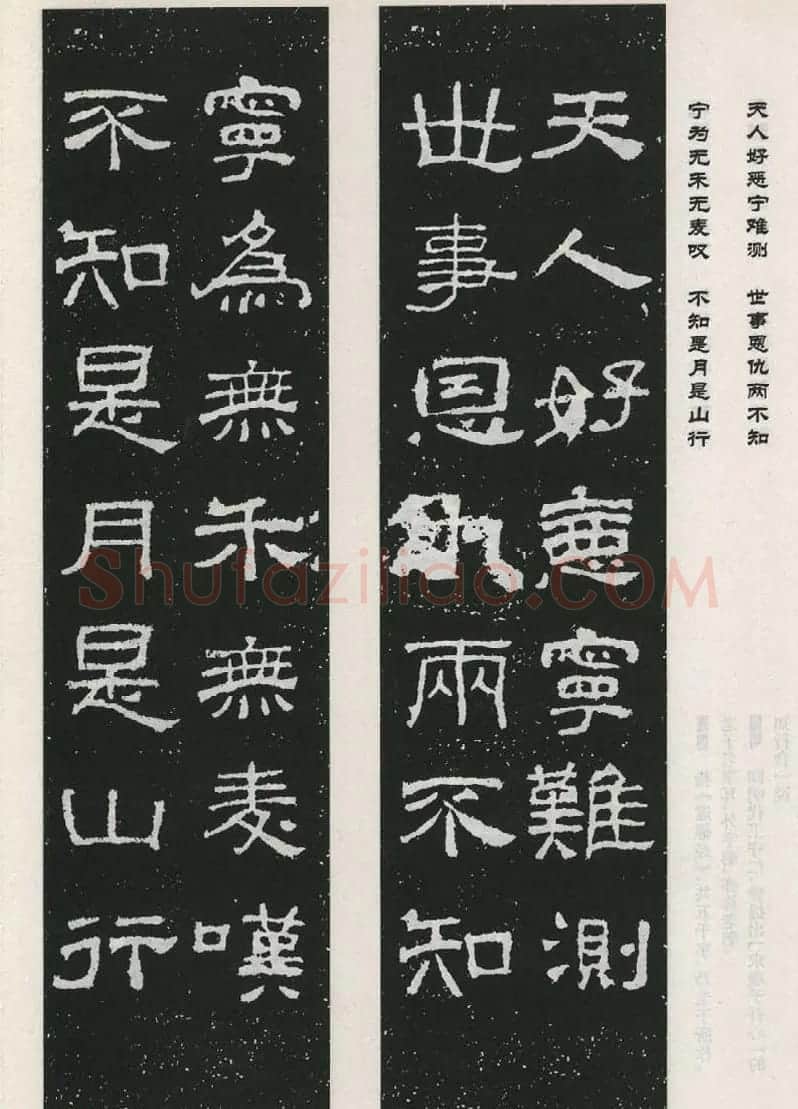 天人好恶宁难测 世事恩仇两不知
宁为无禾无麦叹 不知是月是山行
天人好惡寧難測
世事恩仇兩不知
寧爲無禾無麦嘆
不知是月是山行
Shufaziliao.COM